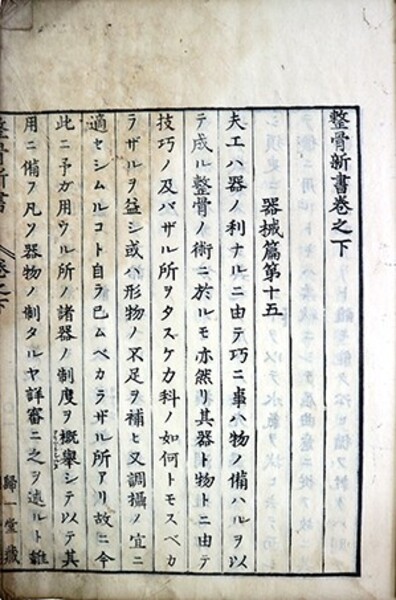 整骨新書巻之下
器械篇第十五
夫工ハ器ノ利ナルニ由テ巧ニ事ハ物ノ備ハルヲ以
テ成ル整骨ノ術ニ於ルモ亦然リ其器ト物トニ由テ
技巧ノ及バザル所ヲタスケ力料ノ如何トモスベカ
ラザルヲ益シ或ハ形物ノ不足ヲ補ヒ又調攝ノ宜ニ
適セシムルコト自ラ已ムベカラザル所アリ故ニ今
此ニ予ガ用ウル所ノ諸器ノ制度ヲ概舉シテ以テ其
用ニ備フ凡ソ器物ノ制タルヤ詳審ニ之ヲ述ルト雖
歸一堂藏
整骨新書
巻之下